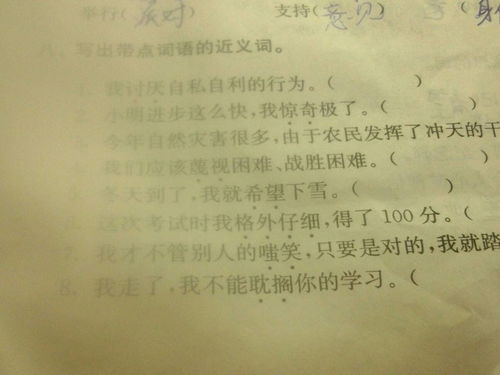 举行(反对) 支持(意见) (
八、写出带点词语的近义词。
1. 我讨厌自私自利的行为。( )
小明进步这么快,我惊奇极了。( )
今年自然灾害很多,由于农民发挥了冲天的干
我们应该蔑视困难、战胜困难。( )
冬天到了,我就希望下雪。( )
这次考试时我格外仔细,得了100分。(
我才不管别人的嗤笑,只要是对的,我就踏
8. 我走了,我不能耽搁你的学习。(